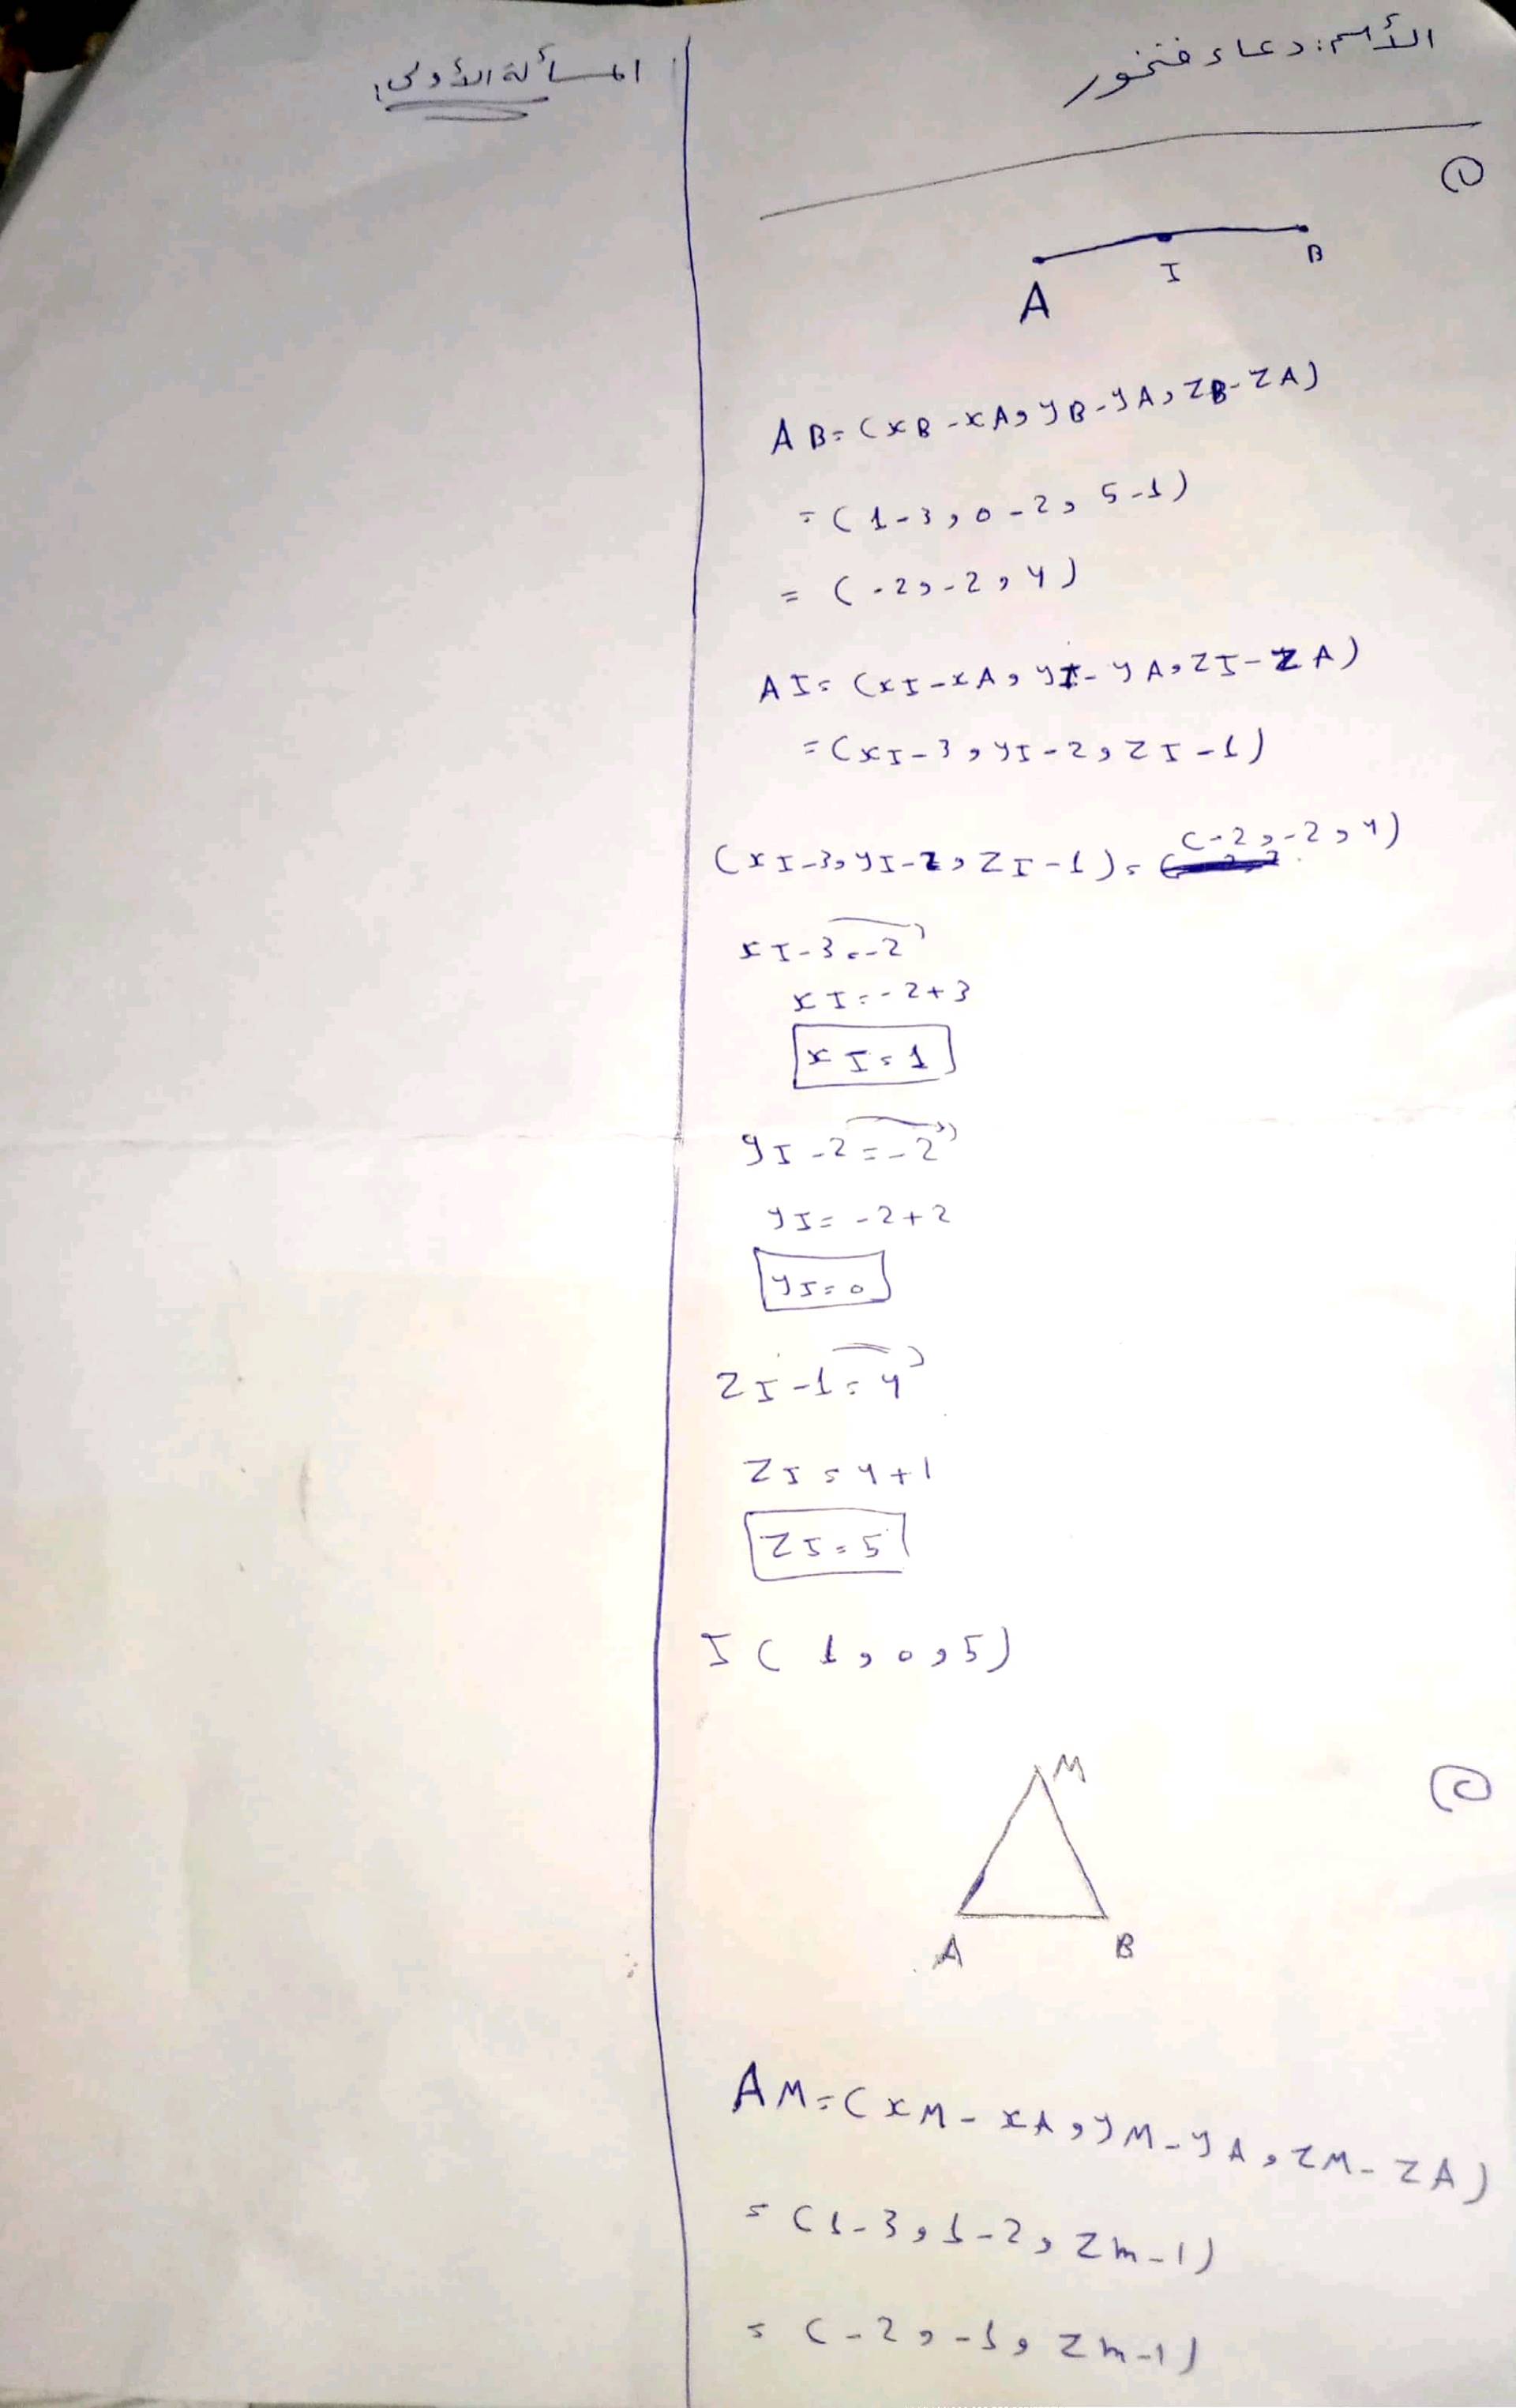 الأسم: دعاء فنخور
المسألة الأولى:
①
A I B
AB=(xB-xA,yB-yA,zB-zA)
=(1-3,0-2,5-1)
=(-2,-2,4)
AI=(xI-xA,yI-yA,zI-zA)
=(xI-3,yI-2,zI-1)
(xI-3,yI-2,zI-1)=(-2,-2,4)
xI-3=-2
xI=-2+3
xI=1
yI-2=-2
yI=-2+2
yI=0
zI-1=4
zI=4+1
zI=5
I(1,0,5)
②
M
A B
AM=(xM-xA,yM-yA,zM-zA)
=(1-3,1-2,zm-1)
=(-2,-1,zm-1)